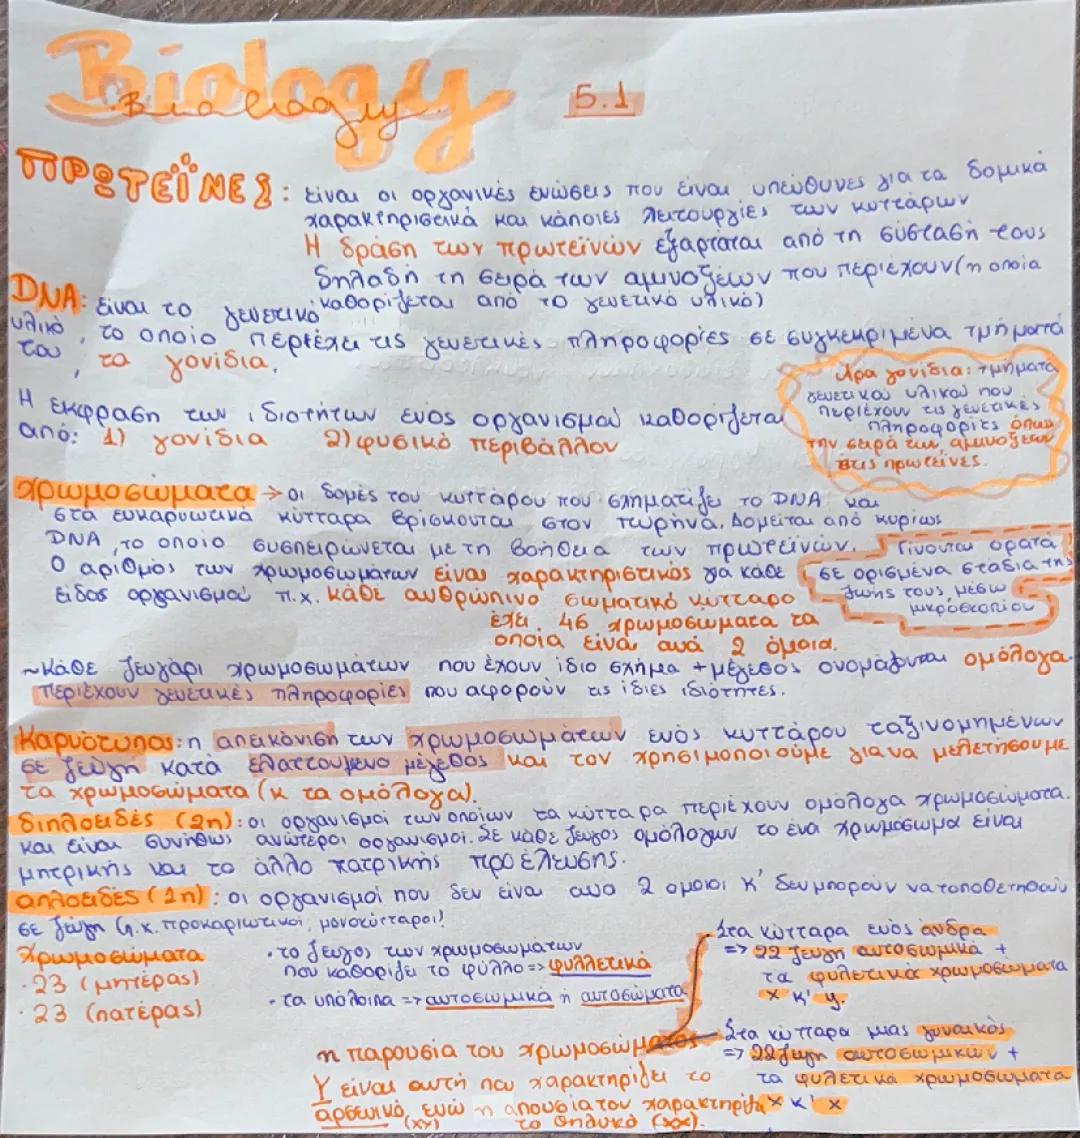 Biology
Βιολογία
5.1
ΠΡΩΤΕΪΝΕΣ: είναι οι οργανικές ενώσεις που είναι υπεύθυνες για τα δομικά
χαρακτηριστικά και κάποιες λειτουργίες των κυττάρων
Η δράση των πρωτεϊνών εξαρτάται από τη σύστασή τους
δηλαδή τη σειρά των αμινοξέων που περιέχουν (η οποία
καθορίζεται από το γενετικό υλικό)
DNA: είναι το γενετικό
υλικό, το οποίο περιέχει τις γενετικές πληροφορίες σε συγκεκριμένα τμήματά
του, τα γονίδια.
Άρα γονίδια: τμήματα
γενετικού υλικού που
περιέχουν τις γενετικές
πληροφορίες όπως
την σειρά των αμινοξέων
στις πρωτεΐνες.
Η έκφραση των ιδιοτήτων ενός οργανισμού καθορίζεται
από: 1) γονίδια 2) φυσικό περιβάλλον
χρωμοσώματα → οι δομές του κυττάρου που σχηματίζει το DNA και
στα ευκαρυωτικά κύτταρα βρίσκονται στον πυρήνα. Δομείται από κυρίως
DNA, το οποίο συσπειρώνεται με τη βοήθεια των πρωτεϊνών.
Ο αριθμός των χρωμοσωμάτων είναι χαρακτηριστικός για κάθε
είδος οργανισμού π.χ. κάθε ανθρώπινο σωματικό κύτταρο
έχει 46 χρωμοσώματα τα
οποία είναι ανά 2 όμοια.
Γίνονται ορατά
σε ορισμένα στάδια της
ζωής τους, μέσω
μικροσκοπίου
~Κάθε ζευγάρι χρωμοσωμάτων που έχουν ίδιο σχήμα + μέγεθος ονομάζονται ομόλογα
περιέχουν γενετικές πληροφορίες που αφορούν τις ίδιες ιδιότητες.
Καρυότυπος: η απεικόνιση των χρωμοσωμάτων ενός κυττάρου ταξινομημένων
σε ζεύγη κατά ελαττούμενο μέγεθος και τον χρησιμοποιούμε για να μελετήσουμε
τα χρωμοσώματα (κ τα ομόλογα).
διπλοειδές (2n): οι οργανισμοί των οποίων τα κύτταρα περιέχουν ομόλογα χρωμοσώματα.
και είναι συνήθως ανώτεροι οργανισμοί. Σε κάθε ζεύγος ομόλογων το ένα χρωμόσωμα είναι
μητρικής και το άλλο πατρικής προέλευσης.
απλοειδές (1n): οι οργανισμοί που δεν είναι ανα 2 όμοιοι κ' δεν μπορούν να τοποθετηθούν
σε ζεύγη (π.χ. προκαριωτικοί, μονοκύτταροι)
Χρωμοσώματα
· 23 (μητέρας)
· 23 (πατέρας)
· το ζεύγος των χρωμοσωμάτων
που καθορίζει το φύλλο => φυλλετικά
· τα υπόλοιπα => αυτοσωμικά ή αυτοσώματα
Στα κύτταρα ενός άνδρα
=> 22 ζεύγη αυτοσωμικά +
τα φυλετικά χρωμοσώματα
x κ' y.
Στα κύτταρα μιας γυναικός
=> 22 ζεύγη αυτοσωμικών +
τα φυλετικά χρωμοσώματα
x κ' x
η παρουσία του χρωμοσώματος
Υ είναι αυτή που χαρακτηρίζει το
αρσενικό, ενώ η απουσία του χαρακτηρίζει
(xy) το θηλυκό (xx).